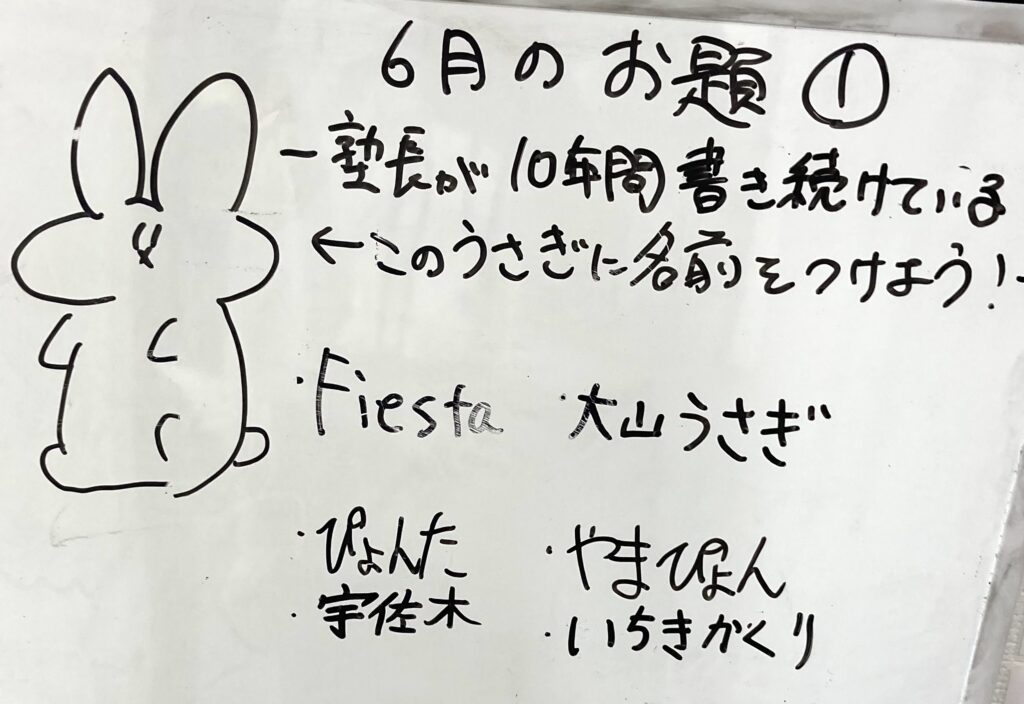 6月のお題①
ー塾長が10年間書き続けている
←このうさぎに名前をつけよう!ー
・Fiesta
大山うさぎ
・ぴょんた
・やまぴょん
・宇佐木
・いちきかくり